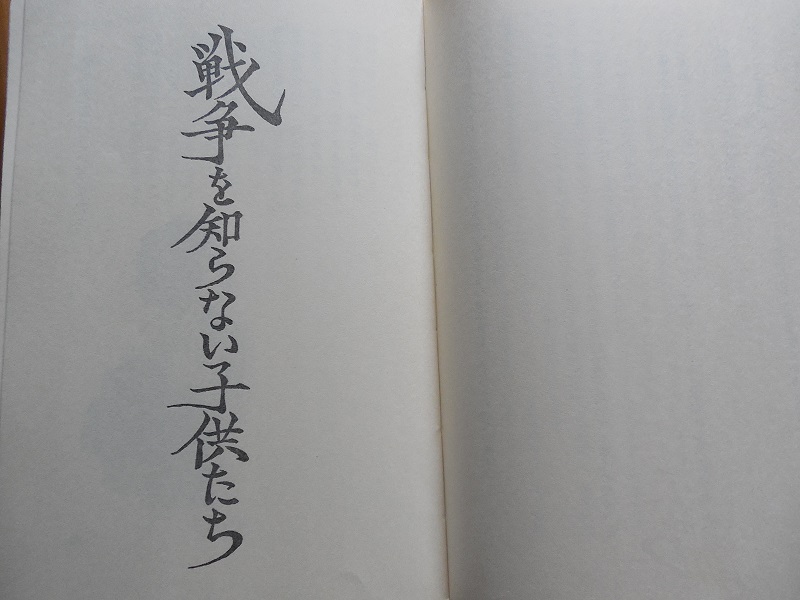 戦争を知らない子供たち